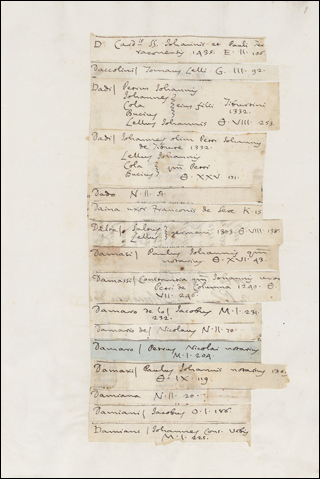 D Card.lis SS. Iohannis et Pauli
1435. E. II. 106.
Daccolini / Tomaus Lelli G. III. 92.
Dadi / Petrus Iohannis
Iohannes
Cola eius filii Tiburtini
Bucius 1332.
Lellus Iohannis Θ. VIII. 253.
Dadi / Iohannes olim Petri Iohannis
de Tibure 1332.
Lellus Iohannis
Cola qm Petri
Bucius Θ. XXV 171.
Dado N. II. A.
Daina uxor Franconis de Seve K. 15
Germani 1303. Θ VIII 138.
Damasi / Paulus Iohannis qm
notarius Θ. XVI. 43.
Damassi / Iohanni uxor
Petri de Columna 1240. Θ.
VII. 240.
Damaso de Iacobus M. I. 231.
232.
Damaso de / Nicolaus N. II. 70.
Damaso / Petrus Nicolai notarius
M. I. 204.
Damasi / Paulus Iohannis notarius
Θ. IX. 119.
Damiana N. II. 20.
Damiani / Iacobus O. I. 186.
Damiani / Iohannes Cons. Urbis
M. I. 225.